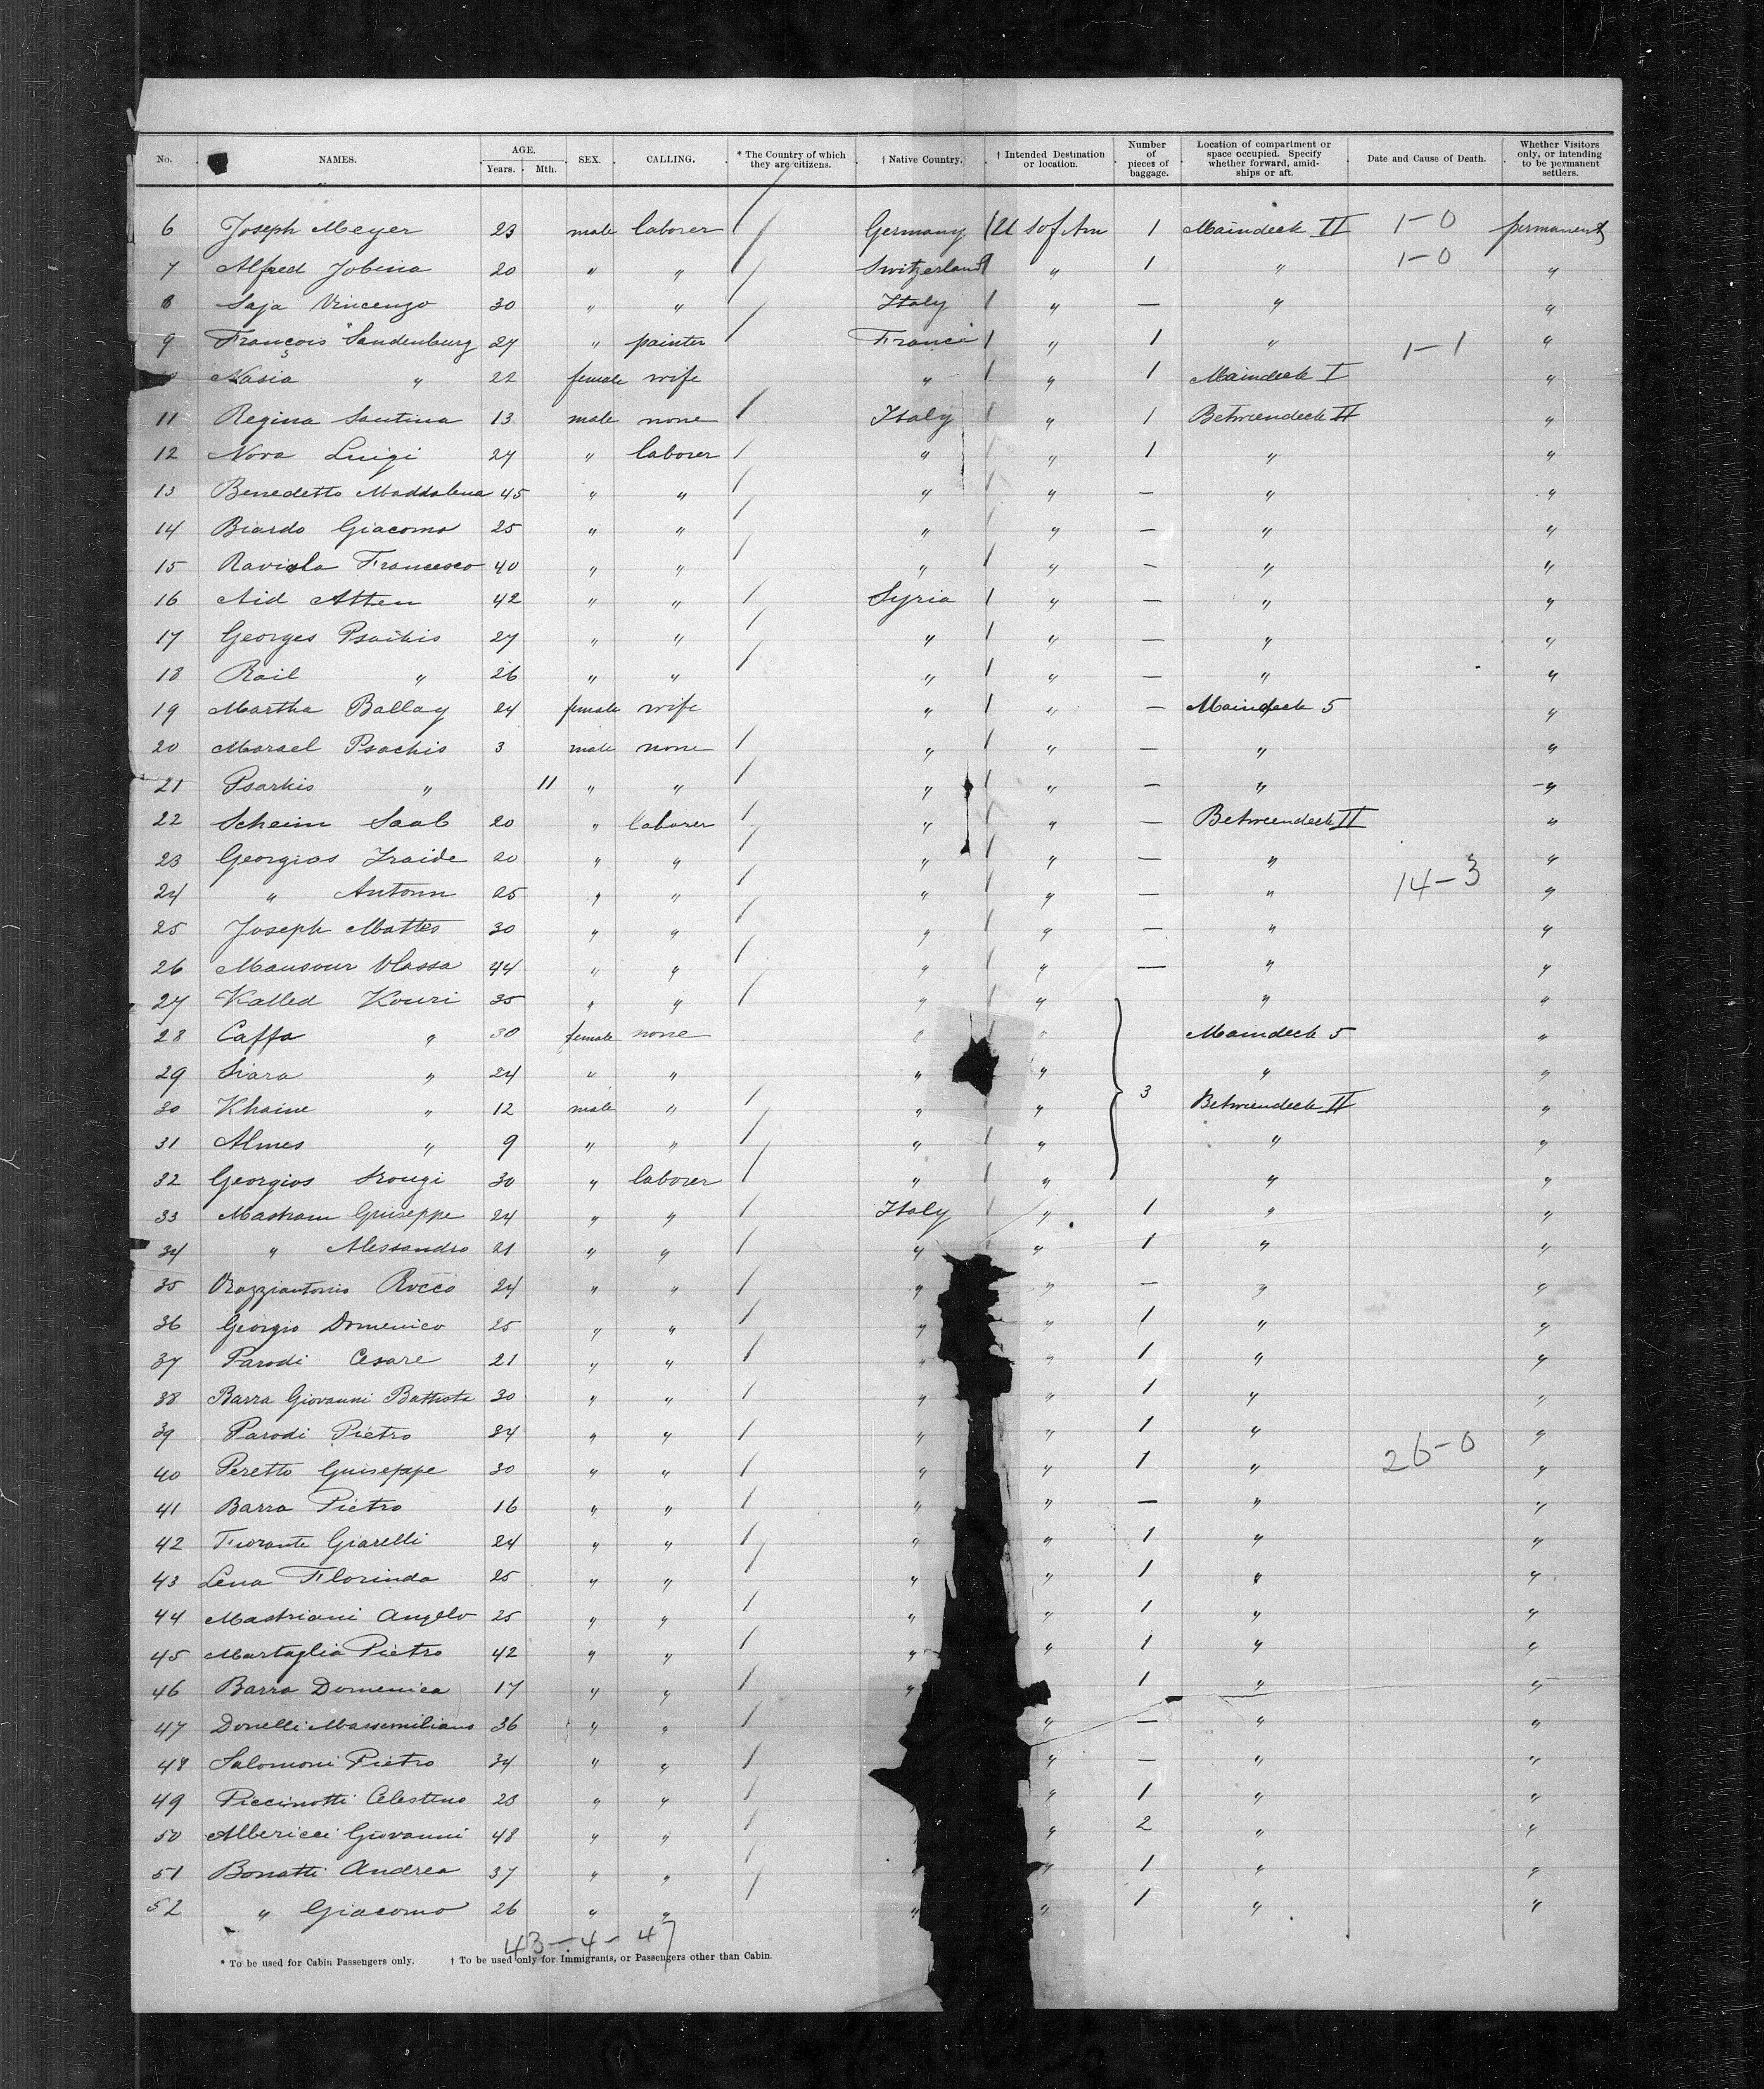 No. NAMES. AGE. Years. Mth. SEX. CALLING. * The Country of which they are citizens. † Native Country. † Intended Destination or location. Number of pieces of baggage. Location of compartment or space occupied. Specify whether forward, amidships or aft. Date and Cause of Death. Whether Visitors only, or intending to be permanent settlers.
6 Joseph Meyer 23 male laborer / Germany / U S of Am 1 Maindeck II 1-0 permanent
7 Alfred Jobina 20 " " / Switzerland / " 1 " 1-0 "
8 Saja Vincenzo 30 " " / Italy / " — " "
9 François Sandenburg 27 " painter / France / " 1 " 1-1 "
Nasia " 22 female wife " / " 1 Maindeck I "
11 Regina Santina 13 male none / Italy / " 1 Betweendeck II "
12 Nova Luigi 27 " laborer / " / " 1 " "
13 Benedetto Maddalena 45 " " / " / " — " "
14 Biardo Giacomo 25 " " / " / " — " "
15 Raviola Francesco 40 " " / " / " — " "
16 Aid Atten 42 " " / Syria / " — " "
17 Georges Psaikis 27 " " / " / " — " "
18 Rail " 26 " " / " / " — " "
19 Martha Ballay 24 female wife " / " — Maindeck 5 "
20 Marael Psachis 3 male none / " / " — " "
21 Psarkis " 11 " " / " / " — " "
22 Scheim Saab 20 " laborer / " / " — Betweendeck II "
23 Georgios Traide 20 " " / " / " — " "
24 " Antonn 25 " " / " / " — " 14-3 "
25 Joseph Mattes 30 " " / " / " — " "
26 Mansour Massa 44 " " / " / " — " "
27 Kalled Kouri 35 " " / " / " " "
28 Caffa " 30 female none " / " Maindeck 5 "
29 Siara " 24 " " " " " "
30 Khaine " 12 male " / " " 3 Betweendeck II "
31 Almes " 9 " " / " / " " "
32 Georgios Krougi 30 " laborer / " / " " "
33 Mastram Guiseppe 24 " " / Italy / " 1 " "
34 " Alessandro 21 " " / " " 1 " "
35 Orazziantonio Rocco 24 " " / " " — " "
36 Georgio Domenico 25 " " / " " 1 " "
37 Parodi Cesare 21 " " / " " 1 " "
38 Barra Giovanni Battista 30 " " / " 1 " "
39 Parodi Pietro 34 " " / " " 1 " "
40 Peretto Guiseppe 30 " " / " " 1 " 26-0 "
41 Barra Pietro 16 " " / " " — " "
42 Fiorante Giarelli 24 " " / " " 1 " "
43 Lena Florinda 25 " " / " " 1 " "
44 Mastriani Angelo 25 " " / " " 1 " "
45 Martaglia Pietro 42 " " / " " 1 " "
46 Barra Domenica 17 " " / " 1 " "
47 Donelli Massemiliano 36 " " / " — " "
48 Salomoni Pietro 34 " " / " — " "
49 Piccinotti Celestino 28 " " / " 1 " "
50 Albericci Giovanni 48 " " / " 2 " "
51 Bonatti Andrea 37 " " / " " 1 " "
52 " Giacomo 26 " " / " " 1 " "
43-4-47
* To be used for Cabin Passengers only. † To be used only for Immigrants, or Passengers other than Cabin.